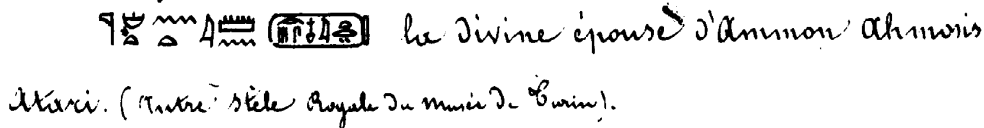 la divine épouse d'Ammon Ahmosis
Atari. (Autre stèle Royale du musée de Turin).